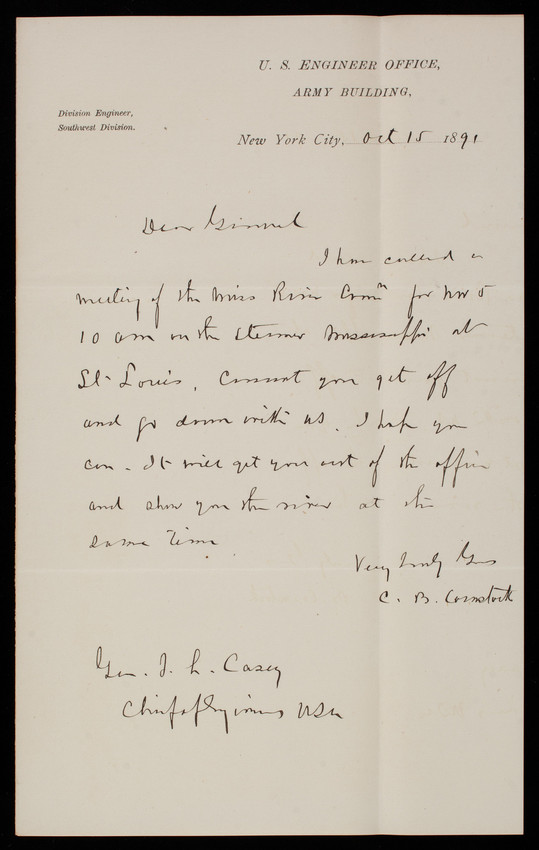 U. S. ENGINEER OFFICE,
ARMY BUILDING,
Division Engineer,
Southwest Division.
New York City, Oct 15 1891
Dear General
I have called a
meeting of the Miss River Comn for Nov 5
10 am on the Steamer Mississippi at
St Louis, Cannot you get off
and go down with us. I hope you
can. It will get you out of the office
and show you the river at the
same time
Very truly Yrs
C. B. Comstock
Gen. T. L. Casey
Chief of Engineers USA